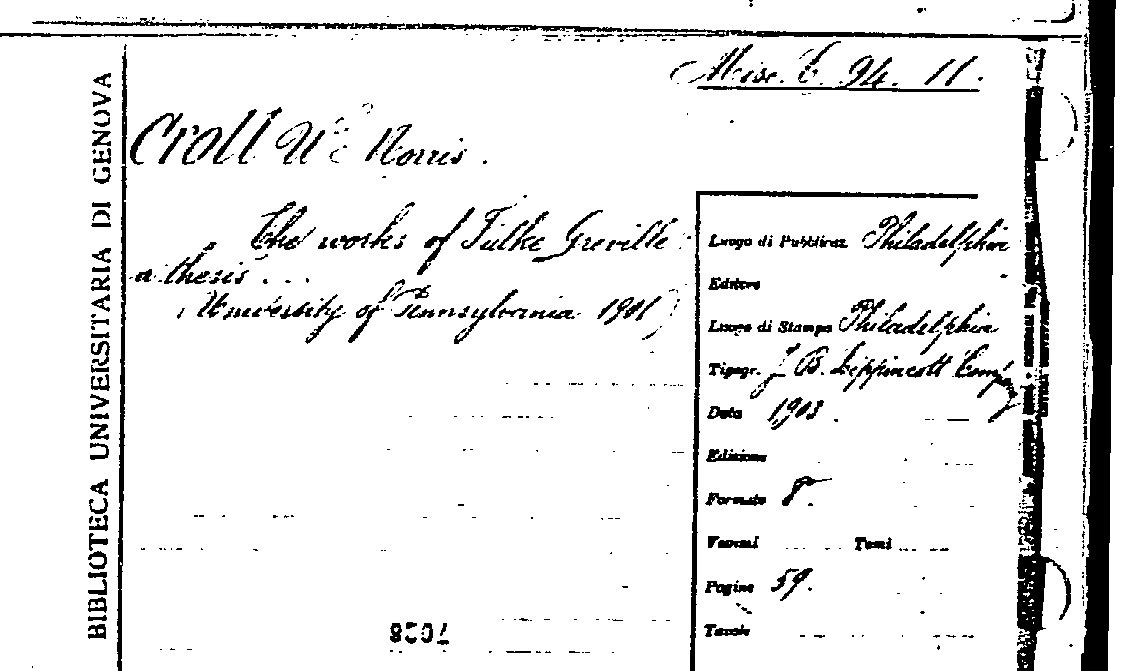 BIBLIOTECA UNIVERSITARIA DI GENOVA
Misc. C. 94. 11.
Croll Norris.
The works of Fulke Greville
a thesis ...
(University of Pennsylvania 1901)
Luogo di Pubblicaz. Philadelphia
Editore
Luogo di Stampa Philadelphia
Tipogr. J B. Lippincott Company
Data 1903.
Edizione
Formato 8°.
Volumi Tomi
Pagine 59.
Tavole
7028